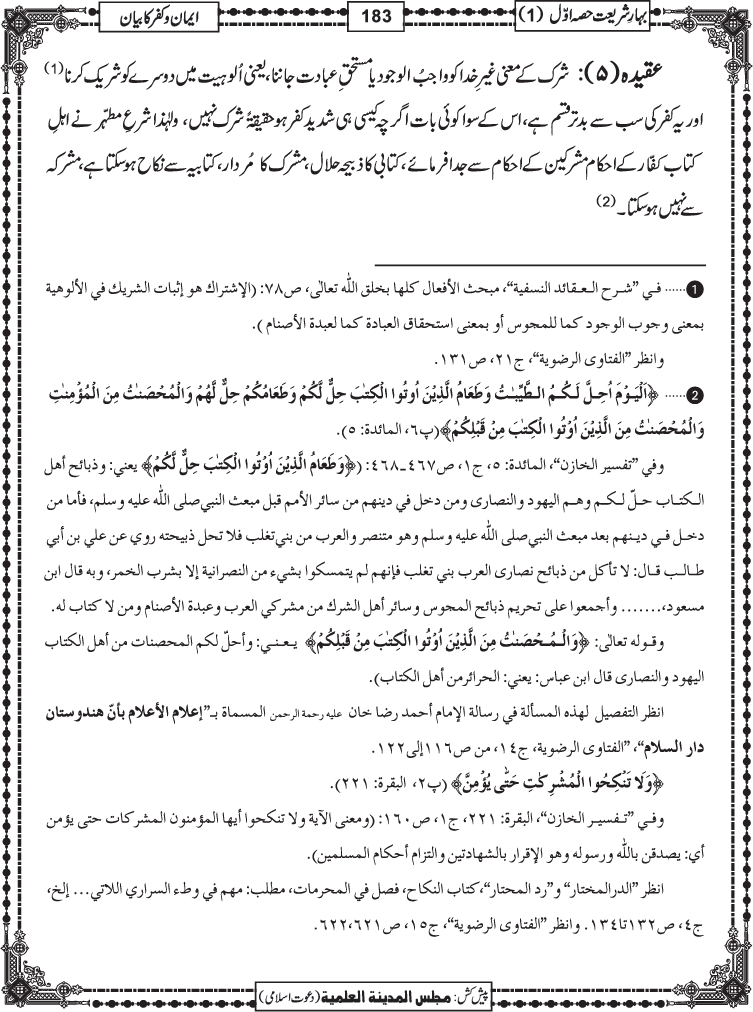 بہارِ شریعت حصہ اوّل (1)
183
ایمان و کفر کا بیان
عقیدہ (۵): شرک کے معنی غیرِ خدا کو واجبُ الوجود یا مستحقِ عبادت جاننا، یعنی اُلوہیت میں دوسرے کو شریک کرنا (1)
اور یہ کفر کی سب سے بدتر قسم ہے، اس کے سوا کوئی بات اگرچہ کیسی ہی شدید کفر ہو حقیقۃً شرک نہیں، ولہٰذا شرعِ مطہّر نے اہلِ
کتاب کفّار کے احکام مشرکین کے احکام سے جدا فرمائے، کتابی کا ذبیحہ حلال، مشرک کا مُردار، کتابیہ سے نکاح ہوسکتا ہے، مشرکہ
سے نہیں ہوسکتا۔ (2)
1 ...... فـي ”شـرح الـعـقائد النسفية“، مبحث الأفعال كلها بخلق الله تعالٰی، ص٧٨: (الإشتراك هو إثبات الشريك في الألوهية
بمعنى وجوب الوجود كما للمجوس أو بمعنى استحقاق العبادة كما لعبدة الأصنام).
وانظر ”الفتاوى الرضوية“، ج٢١، ص١٣١.
2 ...... ﴿اَلْيَوْمَ اُحِلَّ لَكُمُ الطَّيِّبٰتُ وَطَعَامُ الَّذِيْنَ اُوتُوا الْكِتٰبَ حِلٌّ لَّكُمْ وَطَعَامُكُمْ حِلٌّ لَّهُمْ وَالْمُحْصَنٰتُ مِنَ الْمُؤْمِنٰتِ
وَالْمُحْصَنٰتُ مِنَ الَّذِيْنَ اُوْتُوا الْكِتٰبَ مِنْ قَبْلِكُمْ﴾ (پ٦، المائدة: ٥).
وفي ”تفسير الخازن“، المائدة: ٥، ج١، ص٤٦٧ـ٤٦٨: (﴿وَطَعَامُ الَّذِيْنَ اُوْتُوا الْكِتٰبَ حِلٌّ لَّكُمْ﴾ يعني: وذبائح أهل
الـكتـاب حـلّ لـكـم وهـم اليهود والنصارى ومن دخل في دينهم من سائر الأمم قبل مبعث النبي صلى الله عليه وسلم، فأما من
دخـل فـي ديـنهم بعد مبعث النبي صلى الله عليه وسلم وهو متنصر والعرب من بني تغلب فلا تحل ذبيحته روي عن علي بن أبي
طـالـب قـال: لا تأكل من ذبائح نصارى العرب بني تغلب فإنهم لم يتمسكوا بشيء من النصرانية إلا بشرب الخمر، وبه قال ابن
مسعود،....... وأجمعوا على تحريم ذبائح المجوس وسائر أهل الشرك من مشركي العرب وعبدة الأصنام ومن لا كتاب له.
وقـولـه تعالٰی: ﴿وَالْمُحْصَنٰتُ مِنَ الَّذِيْنَ اُوْتُوا الْكِتٰبَ مِنْ قَبْلِكُمْ﴾ يـعـنـي: وأحلّ لكم المحصنات من أهل الكتاب
اليهود والنصارى قال ابن عباس: يعني: الحرائر من أهل الكتاب).
انظر التفصيل لهذه المسألة في رسالة الإمام أحمد رضا خان عليه رحمة الرحمن المسماة بـ”إعلام الأعلام بأنّ هندوستان
دار السلام“، ”الفتاوى الرضوية، ج١٤، من ص١١٦ إلى ١٢٢.
﴿وَلَا تَنْكِحُوا الْمُشْرِكٰتِ حَتّٰى يُؤْمِنَّ﴾ (پ٢، البقرة: ٢٢١).
وفـي ”تـفـسيـر الخازن“، البقرة: ٢٢١، ج١، ص١٦٠: (ومعنى الآية ولا تنكحوا أيها المؤمنون المشركات حتى يؤمن
أي: يصدقن بالله ورسوله وهو الإقرار بالشهادتين والتزام أحكام المسلمين).
انظر ”الدرالمختار“ و”رد المحتار“، كتاب النكاح، فصل في المحرمات، مطلب: مهم في وطء السراري اللاتي... إلخ،
ج٤، ص١٣٢ تا ١٣٤. وانظر ”الفتاوى الرضوية“، ج١٥، ص٦٢١،٦٢٢.
پیش کش: مجلس المدينة العلمية (دعوت اسلامی)